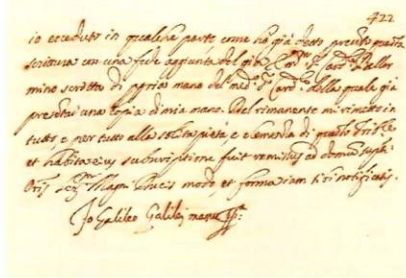 422
io ecceduto in qualche parte come ho già detto presento questa
scrittura con una fede aggiunta del già Emo. Sr. Card.le Bellar
mino scritta di propria mano del med.o Sr. Card.le della quale già
presentai una copia di mia mano. Del rimanente mi rimetto in
tutto e per tutto alla solita pietà e clemenza di questo Trible
et habita eius subscriptione fuit remissus ad domum supti
Oris Sermi Magni Ducis modo, et forma iam sibi notificatis.
Io Galileo Galilei manu pp: